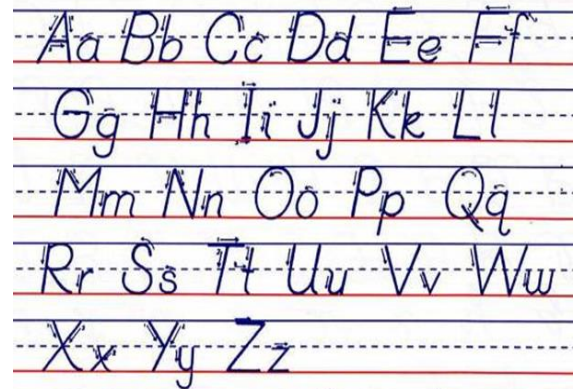 Aa Bb Cc Dd Ee Ff
Gg Hh Ii Jj Kk Ll
Mm Nn Oo Pp Qq
Rr Ss Tt Uu Vv Ww
Xx Yy Zz